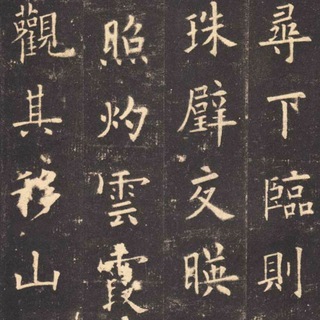 尋下臨則
珠璧交暎
照灼雲霞
觀其移山